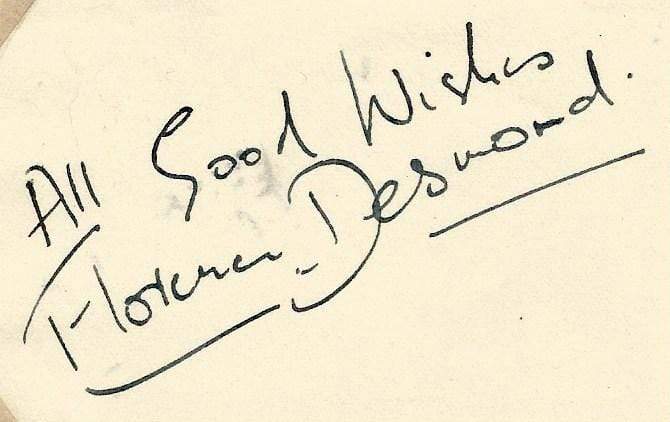 All Good Wishes
Florence Desmond.